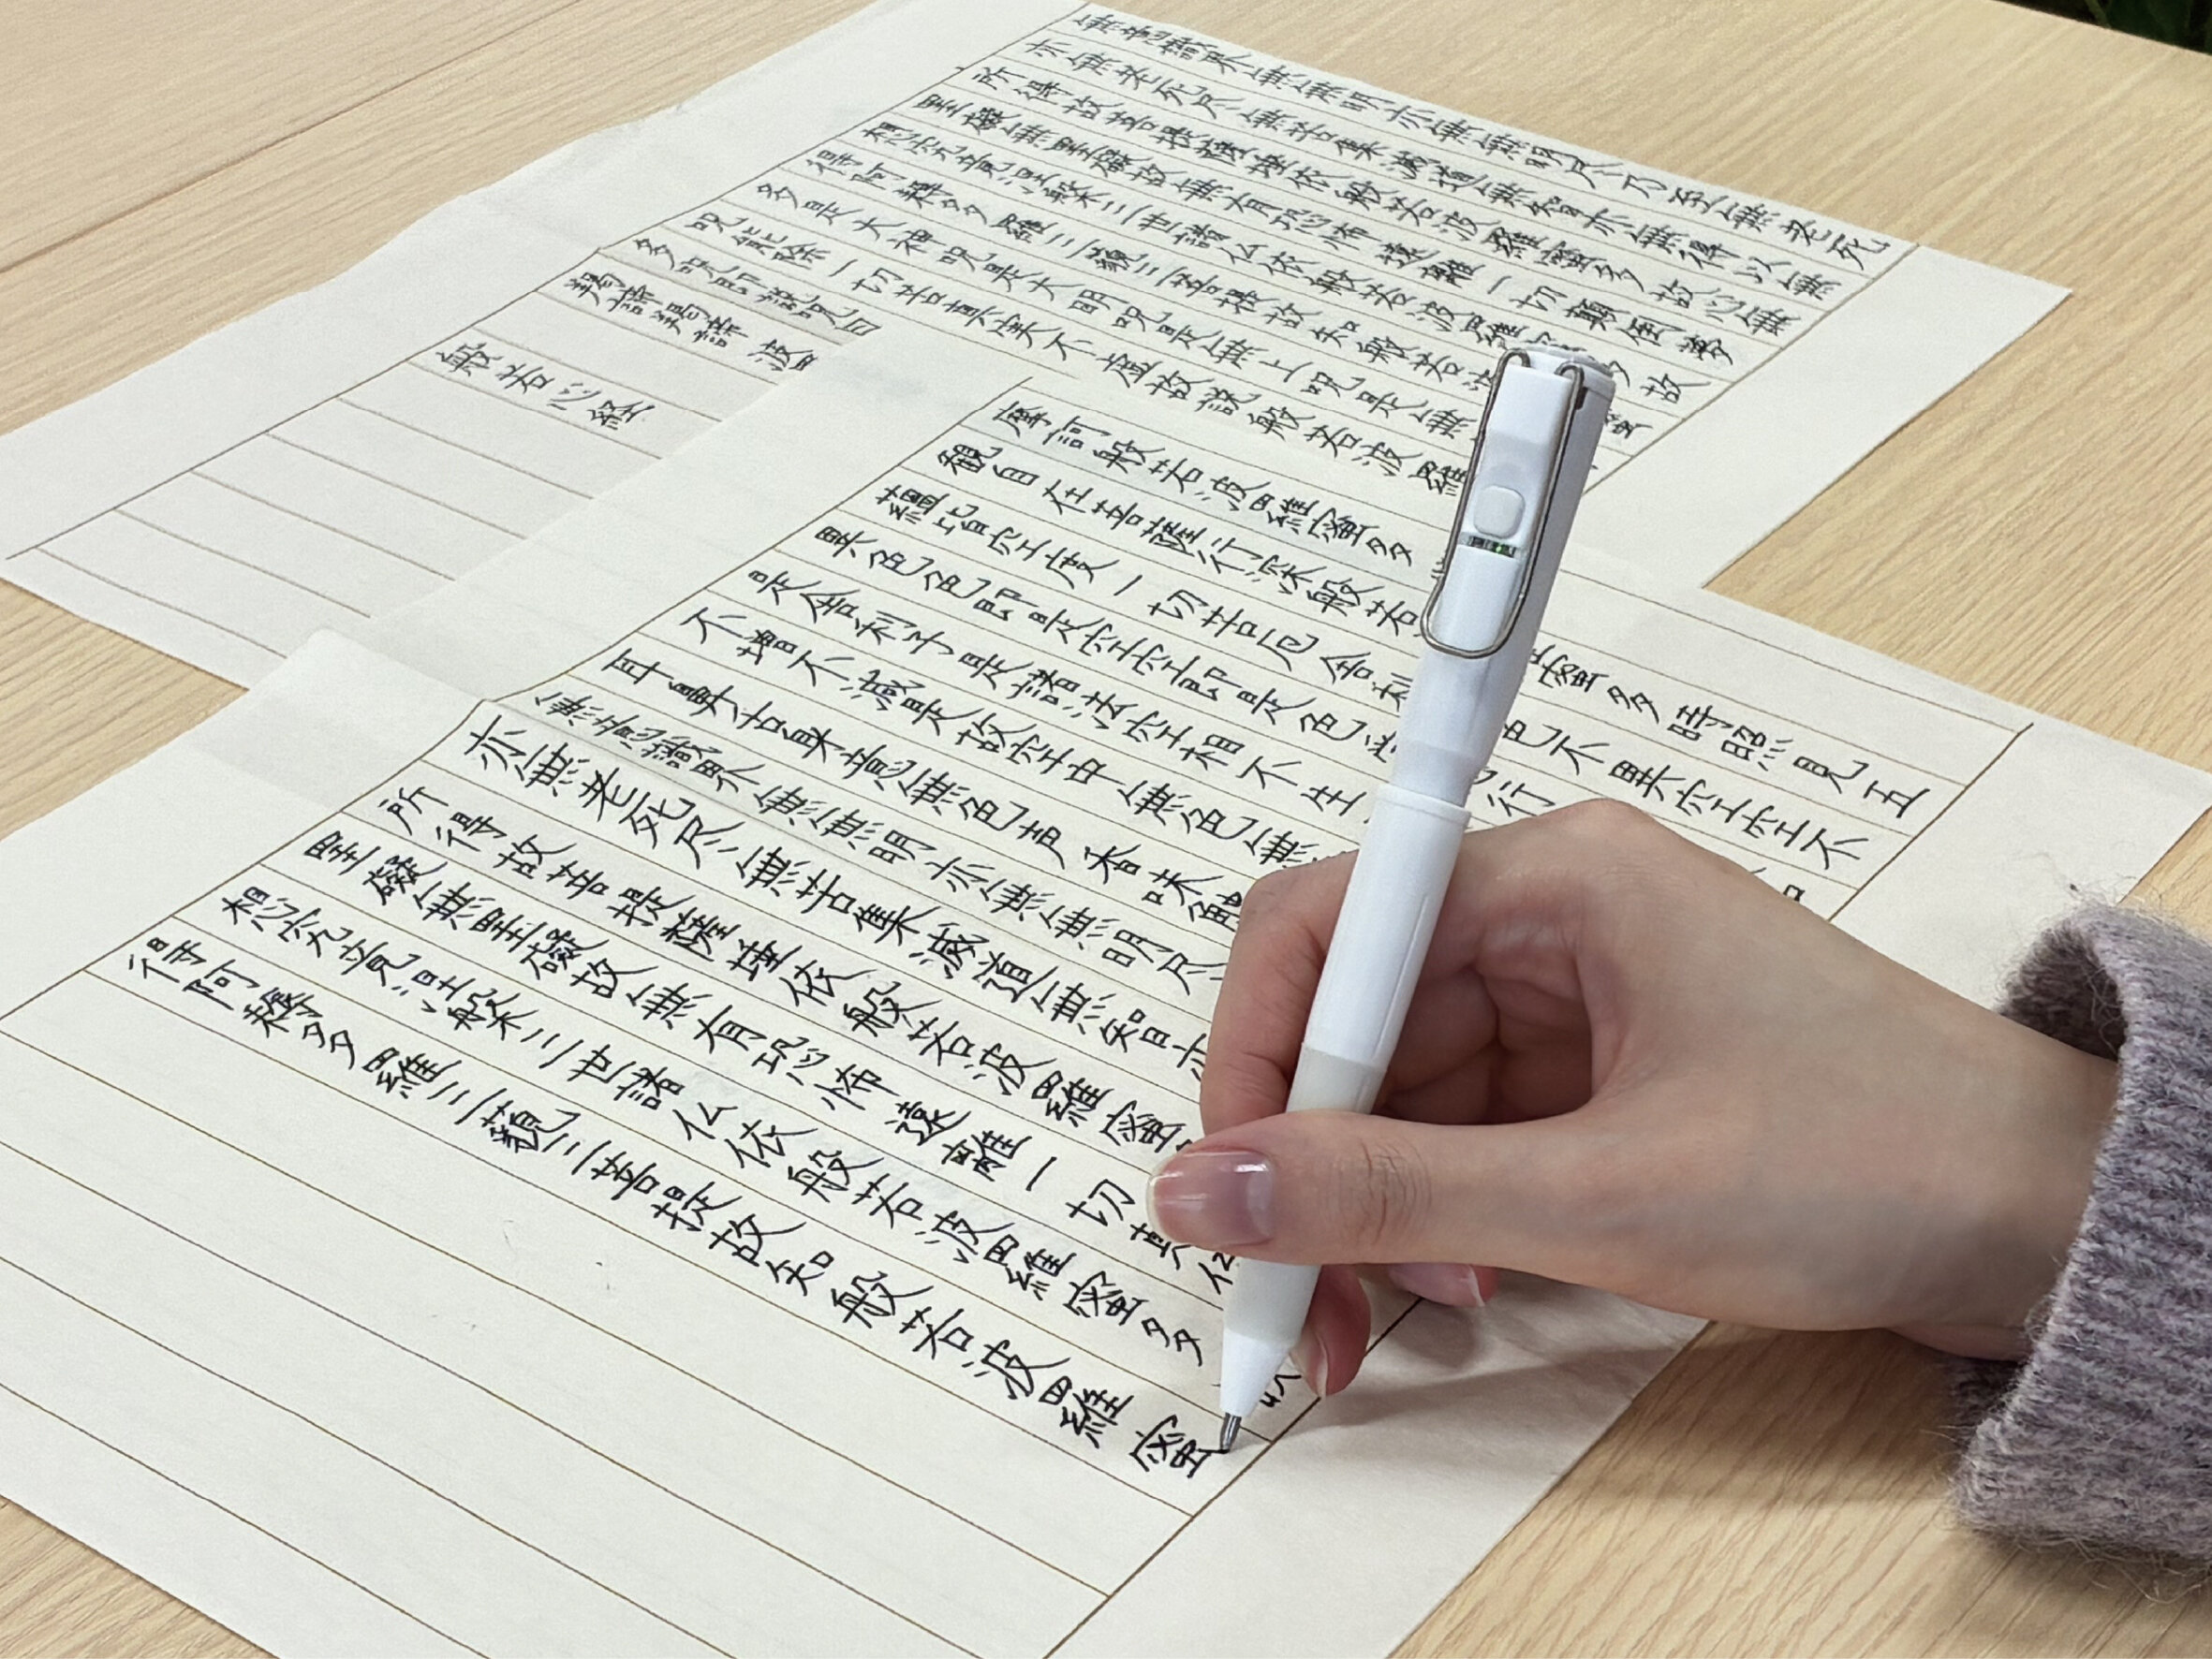 無意識界無無明亦無無明尽乃至無老死
亦無老死尽無苦集滅道無智亦無得以無
所得故菩提薩埵依般若波羅蜜多故心無
罣礙無罣礙故無有恐怖遠離一切顛倒夢
想究竟涅槃三世諸仏依般若波羅多故
得阿耨多羅三藐三菩提故知般若波蜜
多是大神呪是大明呪是無上呪是無
呪能除一切苦真実不虚故説般若波羅
多呪即説呪曰
羯諦羯諦 波
般若心経
摩訶般若波羅蜜多
観自在菩薩行深般若蜜多時照見五
蘊皆空度一切苦厄舎利色不異空空不
異色色即是空空即是色受行
是舎利子是諸法空相不生
不増不減是故空中無色無
耳鼻舌身意無色声香味触
無意識界無無明亦無無明尽
亦無老死尽無苦集滅道無智亦
所得故菩提薩埵依般若波羅蜜
罣礙無罣礙故無有恐怖遠離一切
想究竟涅槃三世諸仏依般若波羅蜜多
得阿耨多羅三藐三菩提故知般若波羅蜜